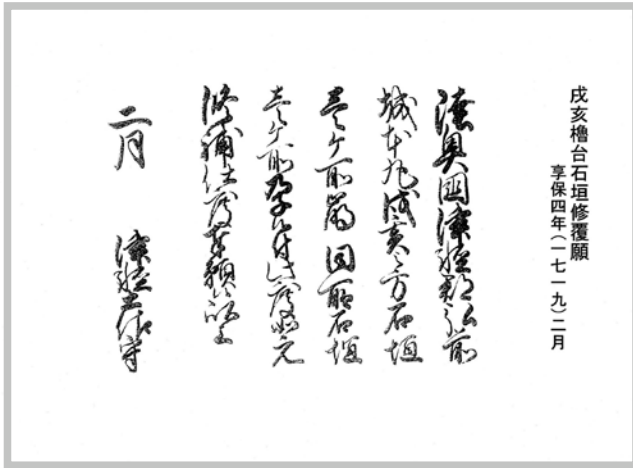 戌亥櫓台石垣修覆願
享保四年(一七一九)二月
陸奥国津軽郡弘前
城本丸戌亥之方石垣
壱ケ所崩同所石垣
壱ケ所孕候付此度如元
修補仕度奉願候以上
二月 津軽土佐守